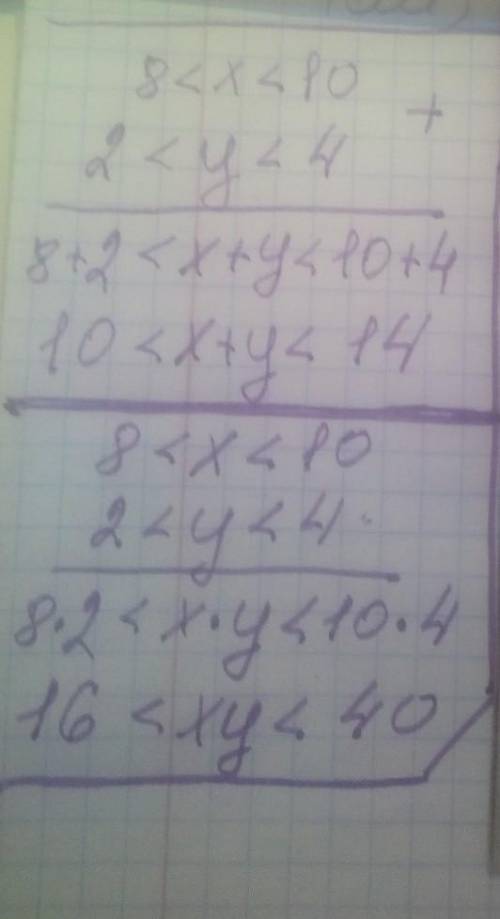 8 < x < 10
+
2 < y < 4
8+2 < x+y < 10+4
10 < x+y < 14
8 < x < 10
2 < y < 4 ·
8·2 < x·y < 10·4
16 < xy < 40